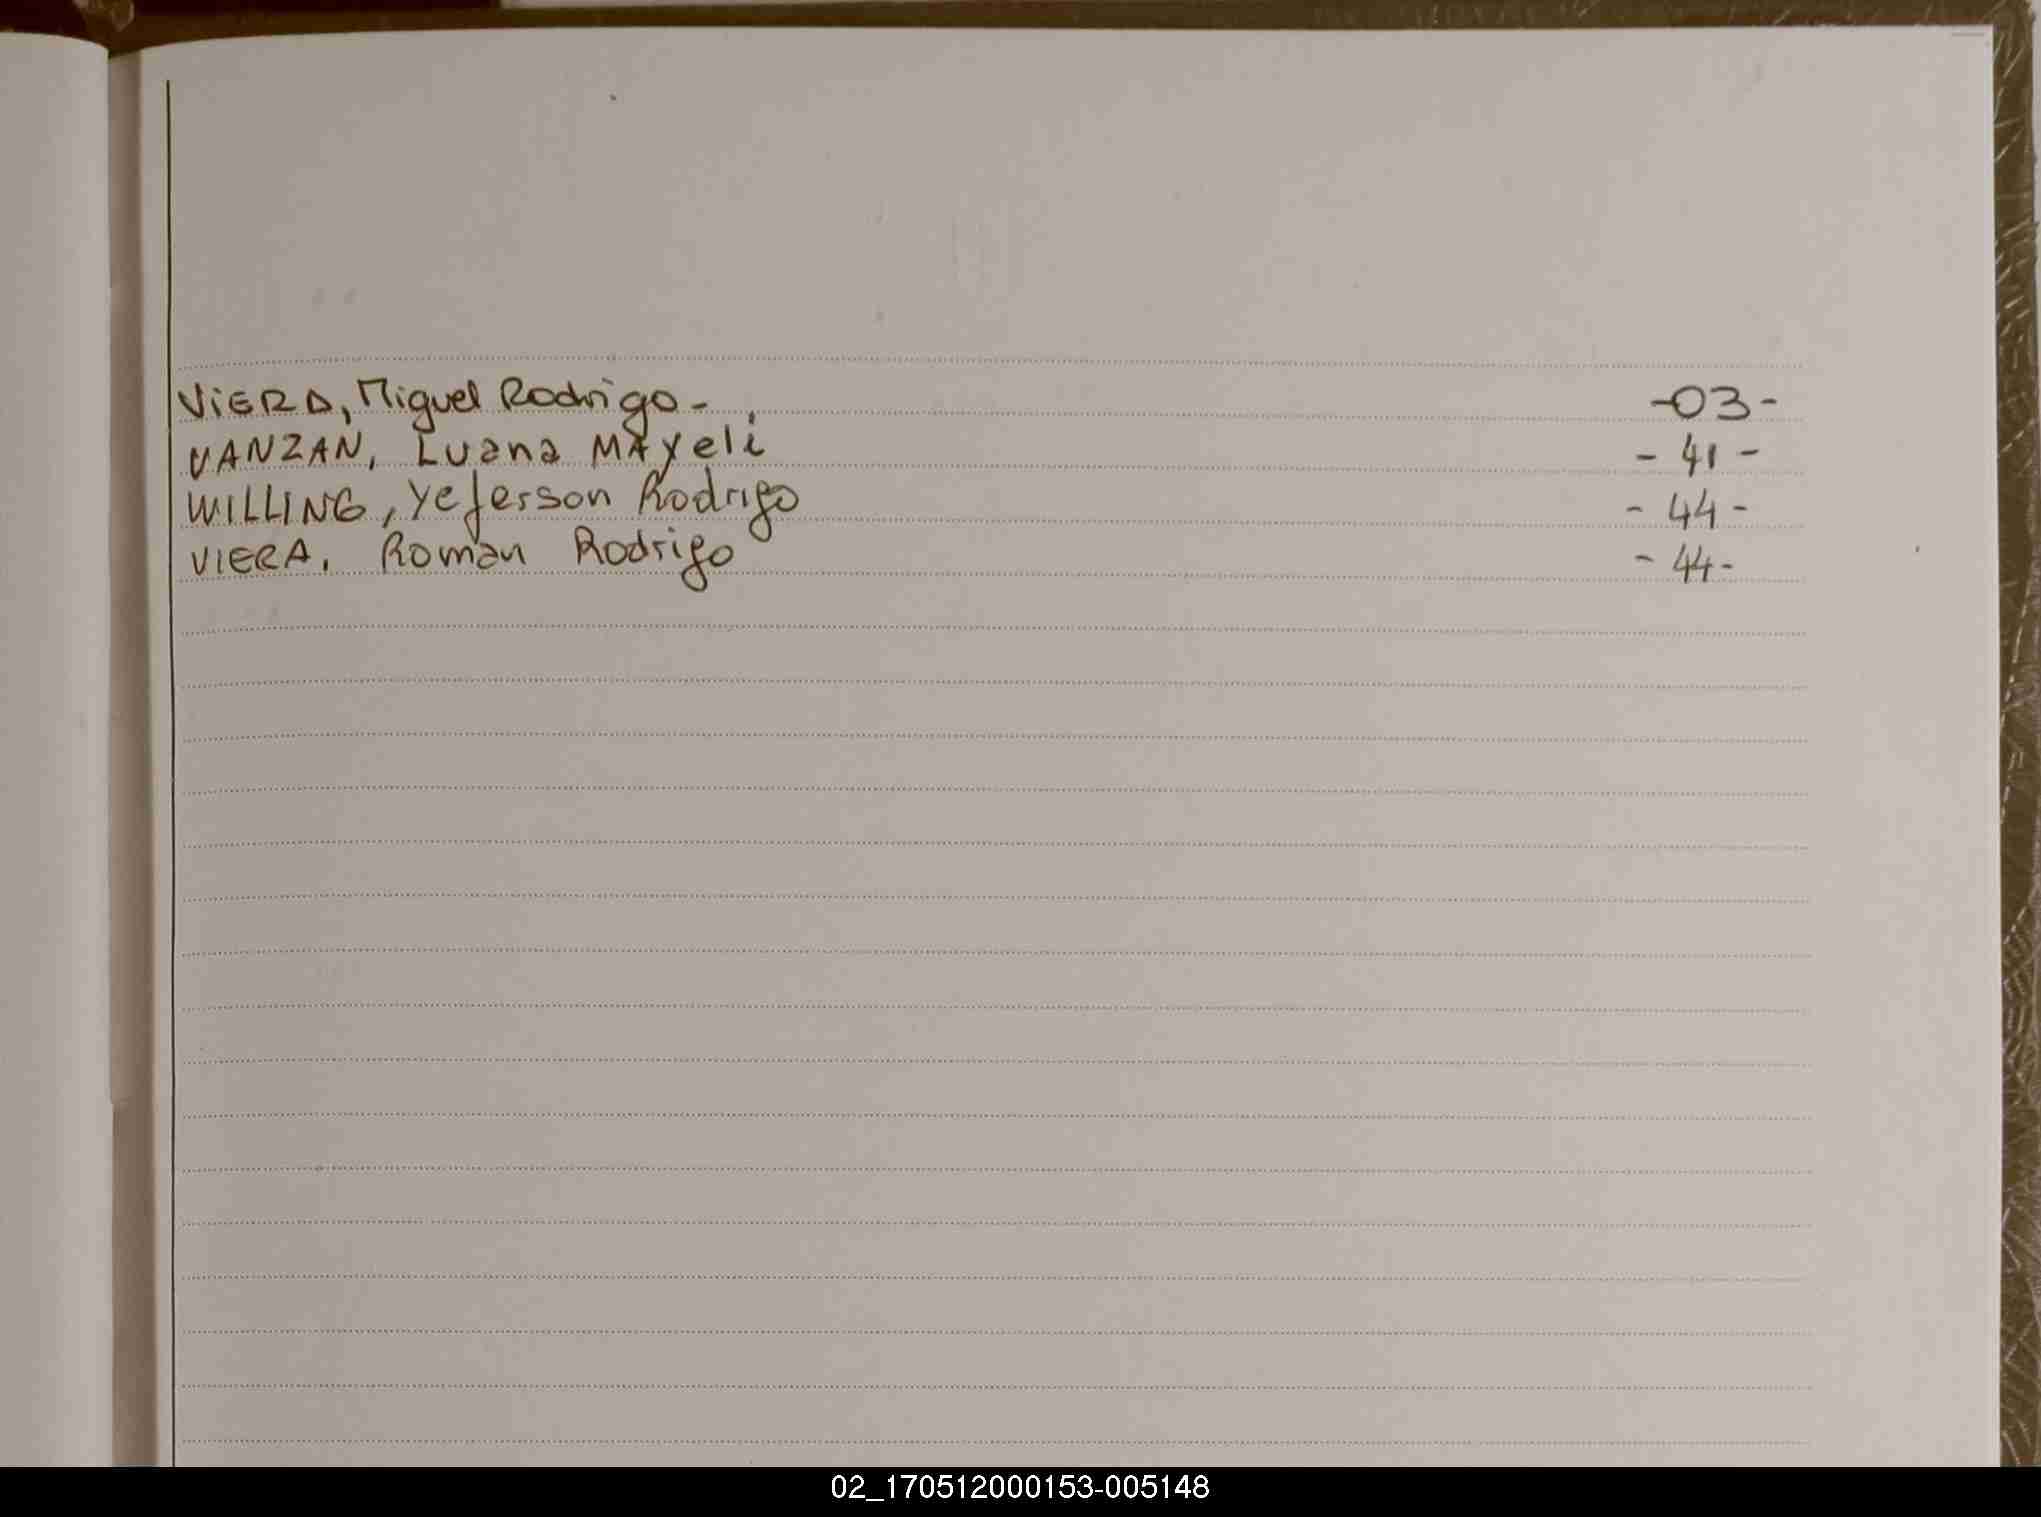 VIERA, Miguel Rodrigo- -03-
VANZAN, Luana MAYeli - 41 -
WILLING, Yeferson Rodrigo - 44 -
VIERA, Roman Rodrigo - 44-
02_170512000153-005148